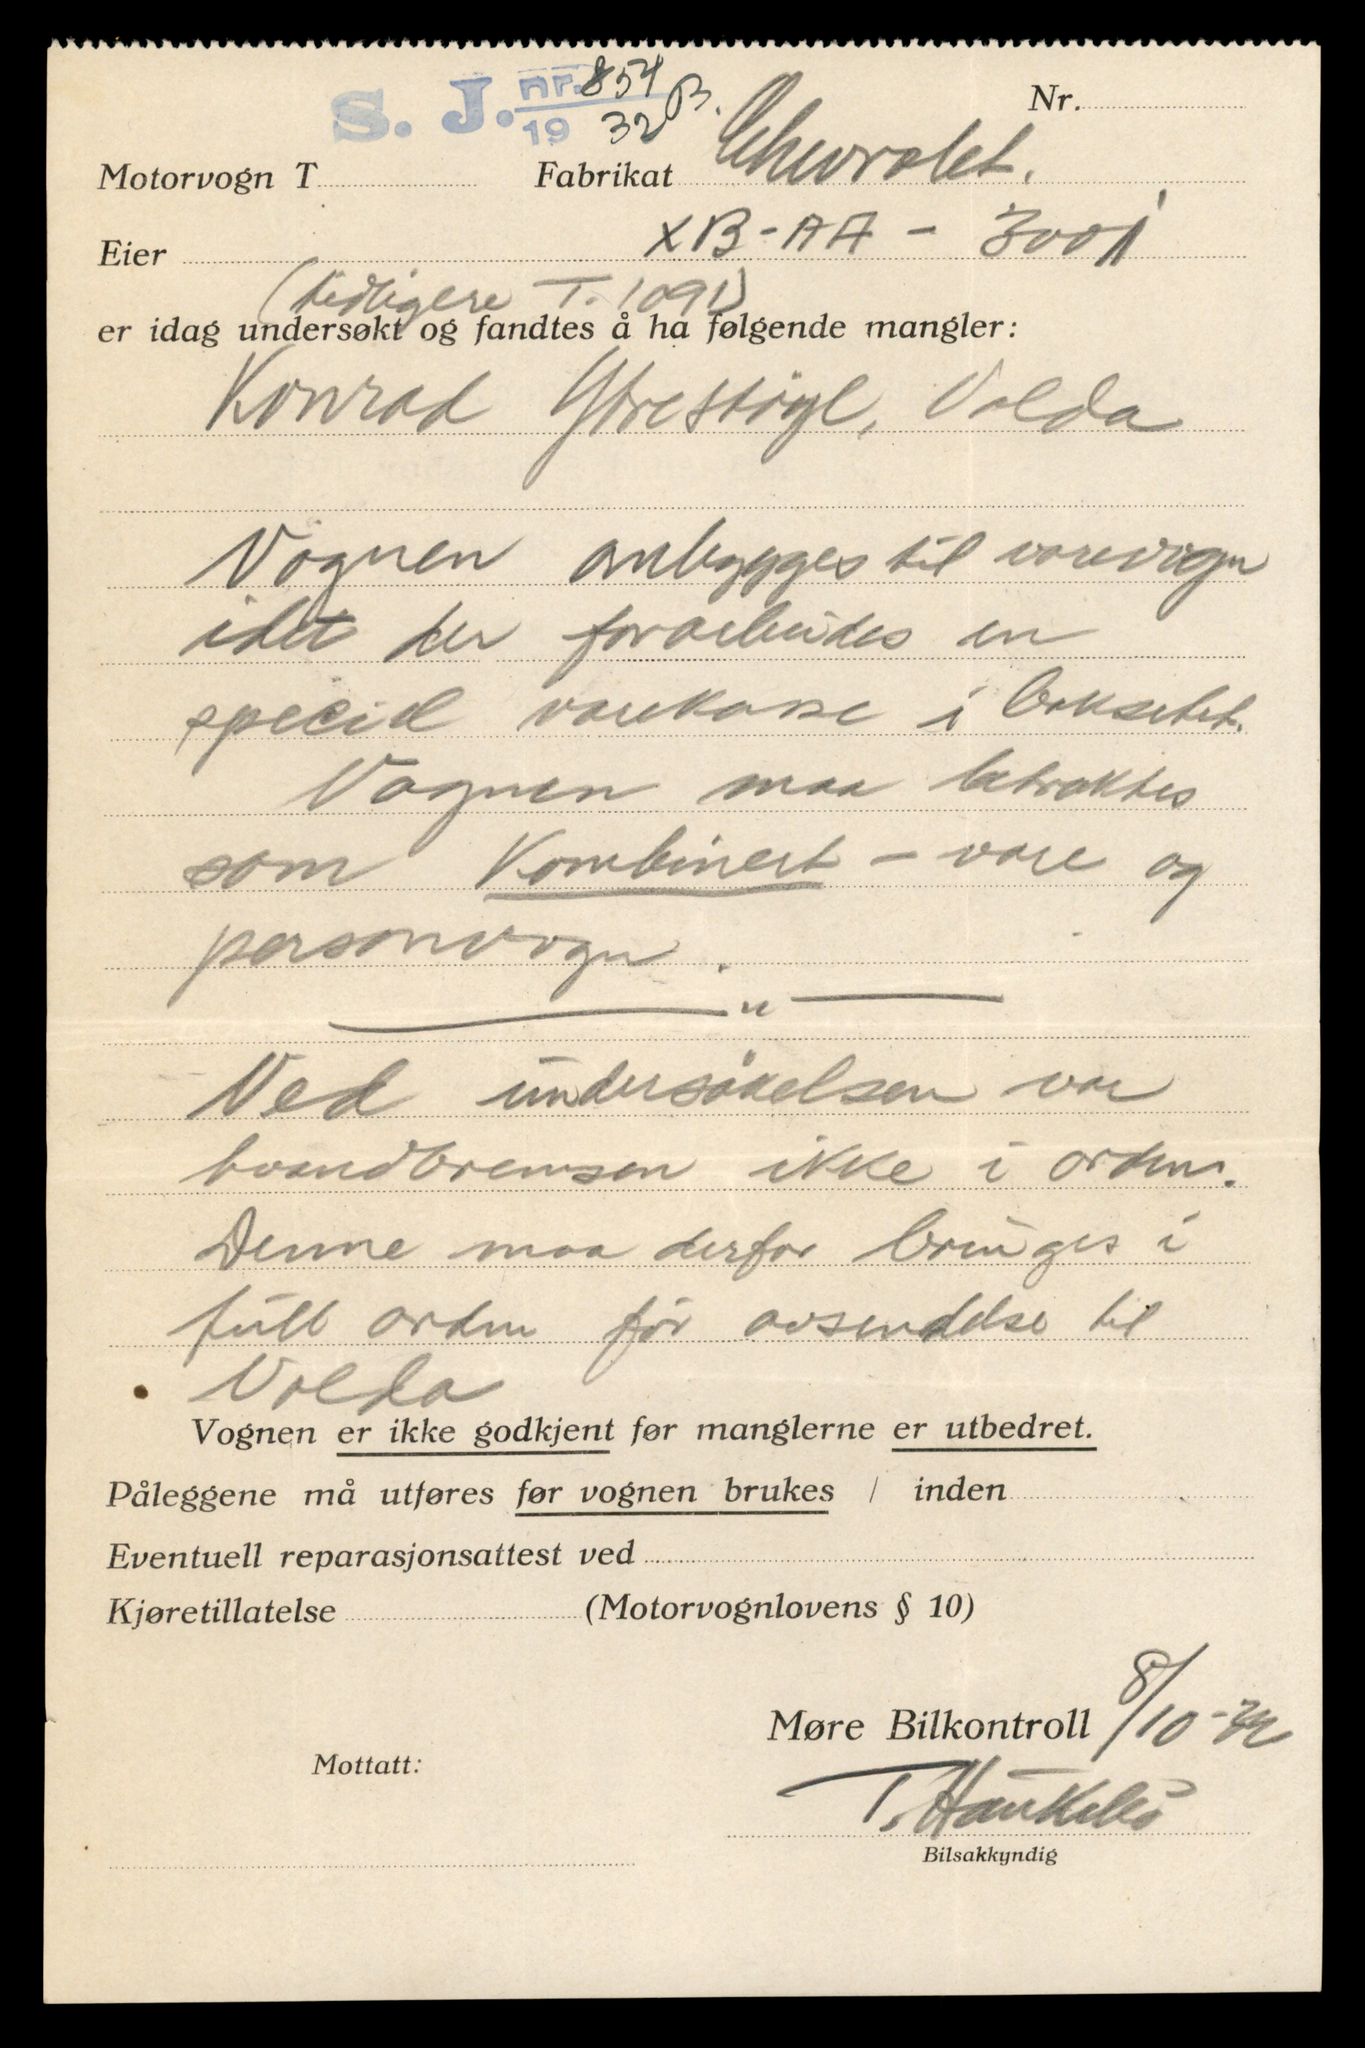 S. J. nr. 854 B.
19 32
Nr.
Motorvogn T Fabrikat Chevrolet.
Eier XB-AA - 3001
(tidligere T. 1091)
er idag undersøkt og fandtes å ha følgende mangler:
Konrad Ytrestöyl, Volda
Vognen ombygges til varevogn
idet der forarbeides en
speciel varekasse i baksetet.
Vognen maa betraktes
som Kombinert - vare og
personvogn.
Ved undersökelsen var
haandbremsen ikke i orden.
Denne maa derfor bringes i
full orden før avsendelse til
Volda
Vognen er ikke godkjent før manglerne er utbedret.
Påleggene må utføres før vognen brukes / inden
Eventuell reparasjonsattest ved
Kjøretillatelse (Motorvognlovens § 10)
Møre Bilkontroll 8/10-32
Mottatt:
T.
Bilsakkyndig